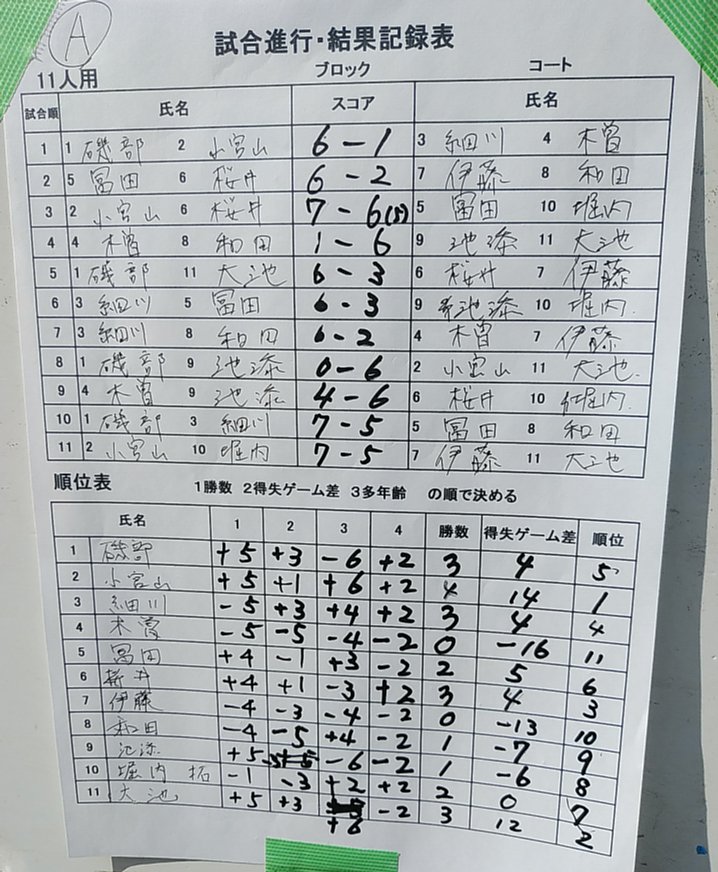 A
試合進行・結果記録表
11人用 ブロック コート
試合順 氏名 スコア 氏名
1 1 磯部 2 小宮山 6-1 3 細川 4 木曽
2 5 冨田 6 桜井 6-2 7 伊藤 8 和田
3 2 小宮山 6 桜井 7-6(5) 5 冨田 10 堀内
4 4 木曽 8 和田 1-6 9 池添 11 大池
5 1 磯部 11 大池 6-3 6 桜井 7 伊藤
6 3 細川 5 冨田 6-3 9 池添 10 堀内
7 3 細川 8 和田 6-2 4 木曽 7 伊藤
8 1 磯部 9 池添 0-6 2 小宮山 11 大池
9 4 木曽 9 池添 4-6 6 桜井 10 堀内
10 1 磯部 3 細川 7-5 5 冨田 8 和田
11 2 小宮山 10 堀内 7-5 7 伊藤 11 大池
順位表 1勝数 2得失ゲーム差 3多年齢 の順で決める
氏名 1 2 3 4 勝数 得失ゲーム差 順位
1 磯部 +5 +3 -6 +2 3 4 5
2 小宮山 +5 +1 +6 +2 4 14 1
3 細川 -5 +3 +4 +2 3 4 4
4 木曽 -5 -5 -4 -2 0 -16 11
5 冨田 +4 -1 +3 -2 2 5 6
6 桜井 +4 +1 -3 +2 3 4 3
7 伊藤 -4 -3 -4 -2 0 -13 10
8 和田 -4 -5 +4 -2 1 -7 9
9 池添 +5 -6 -2 1 -6 8
10 堀内 拓 -1 -3 +2 +2 2 0 7
11 大池 +5 +3 +6 -2 3 12 2